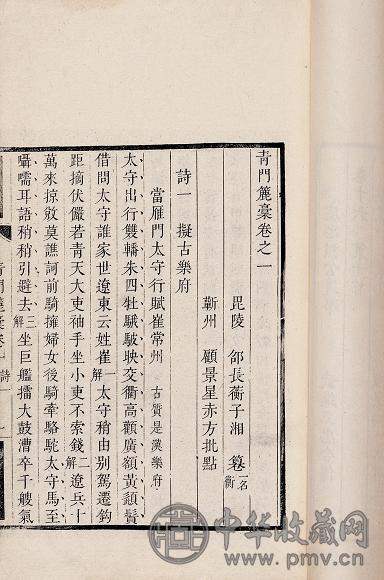 青門簏稾卷之一
毘陵 邵長蘅子湘 篹 一名衡
蘄州 顧景星赤方批點
詩一 擬古樂府
當雁門太守行賦崔常州 古質是漢樂府
太守出行雙轓朱四牡駊駊映交衢高顴廣額黃鬚鬢
借問太守誰家世遼東云姓崔一解太守稍由別駕遷鈎
距摘伏儼若青天大吏袖手坐小吏不索錢二解遼兵十
萬來掠敚莫譙訶前騎擁婦女後騎牽駱駝太守馬至
囁嚅耳語稍稍引避去三解坐巨艦擂大鼓漕卒千艘氣
中华收藏网
www.pmv.cn